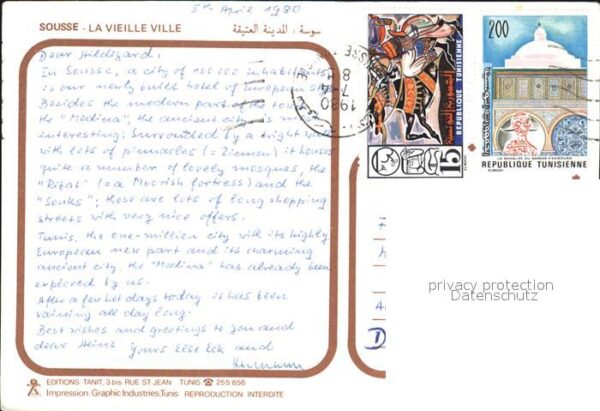 5th April 1980
SOUSSE - LA VIEILLE VILLE
سوسة ، المدينة العتيقة
Dear Hildegard,
In Sousse, a city of 100 000 inhabitants
is our newly built hotel of European
Besides the modern part of the town
the "Medina", the ancient city is
interesting: Surrounded by a bright wall
with lots of pinnacles (= Zinnen) it houses
quite a number of lovely mosques, the
"Ribat" (= a Moorish fortress) and the
"Souks"; those are lots of long shopping
streets with very nice offers.
Tunis, the one-million city with its highly
European new part and its charming
ancient city, the "Medina" has already been
explored by us.
After a few hot days today it has been
raining all day long.
Best wishes and greetings to you and
dear Heinz
Yours Else Eck and
Hermann
REPUBLIQUE TUNISIENNE
الجمهورية التونسية
15
200
LA MOSQUEE DU BARBIER KAIROUAN
REPUBLIQUE TUNISIENNE
1980
privacy protection
Datenschutz
D
EDITIONS TANIT, 3 bis RUE ST JEAN TUNIS ☎ 255 656
Impression Graphic Industries, Tunis REPRODUCTION INTERDITE